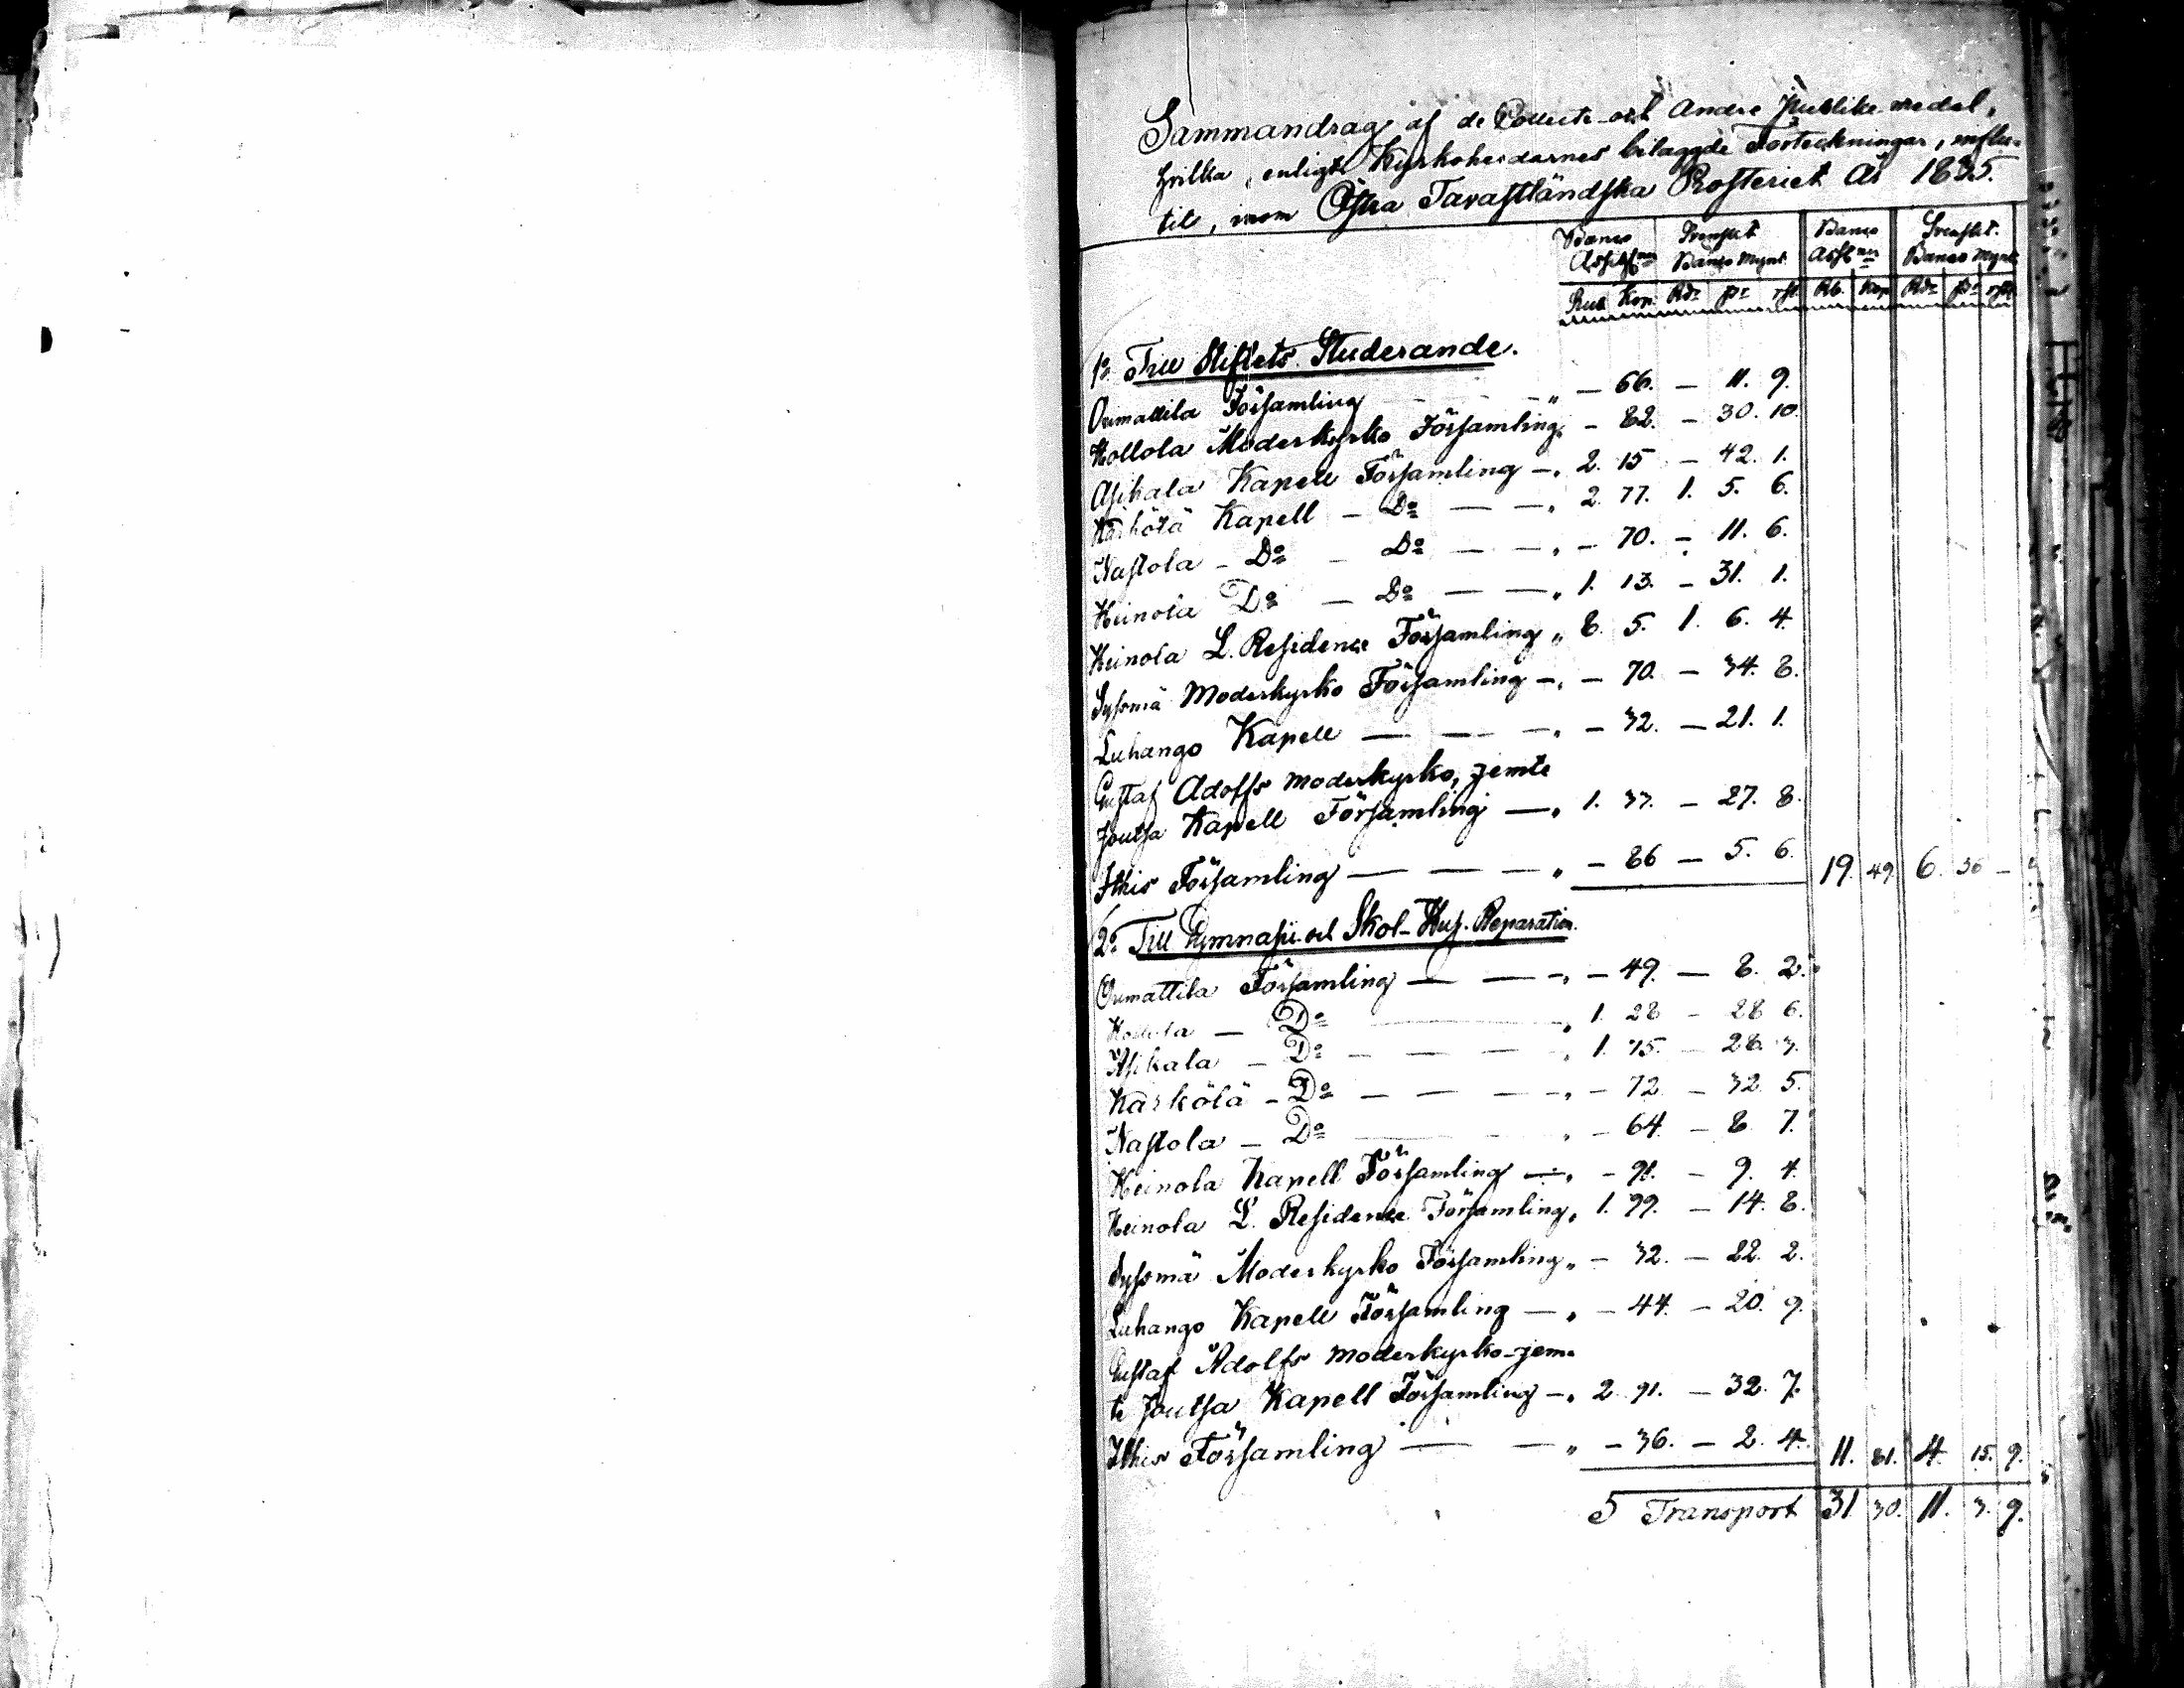 Sammandrag af de Collecte och Andre Publike medel,
hvilka, enligt Kyrkoherdarnes bilaggde Förteckningar, influ-
tit, inom Östra Tavastländska Prosteriet År 1835.
Banco Svenskt Banco Svenskt
Assign Banco Mynt Assn Banco Mynt
Rub Kop. Rdr sr rst Rb. Kop Rdr sr rst
1o Till Stiftets Studerande.
Orimattila Församling „ — 66. — 11. 9.
Hollola Moderkyrko Församling. — 82. — 30. 10.
Asikala Kapell Församling — „ 2. 15 — 42. 1.
Kärkölä Kapell — Do — — „ 2. 77. 1. 5. 6.
Nastola — Do — Do — — „ — 70. — 11. 6.
Heinola Do — Do — — „ 1. 13. — 31. 1.
Heinola L. Residence Församling „ 8. 5. 1. 6. 4.
Sysmä Moderkyrko Församling — „ — 70. — 34. 8.
Luhango Kapell — — — „ — 32. — 21. 1.
Gustaf Adolfs moderkyrko, jemte
Joutsa Kapell Församling — „ 1. 33. — 27. 8.
Ithis Församling — — — „ — 86 — 5. 6. 19. 49. 6. 36 —
2o Till Gymnasii och Skol-Hus Reparation.
Orimattila Församling — — „ — 49. — 8. 2.
Hollola — Do „ 1. 28 — 28 6.
Asikala — Do — — — „ 1. 75. — 28. 3.
Kärkölä — Do — — — „ — 72 — 32. 5.
Nastola — Do „ — 64. — 8. 7.
Heinola Kapell Församling — „ — 91. — 9. 4.
Heinola L. Residence Församling „ 1. 99. — 14. 8.
Sysmä Moderkyrko Församling „ — 32. — 22. 2.
Luhango Kapell Församling — „ — 44. — 20. 9.
Gustaf Adolfs moderkyrko jem-
te Joutsa Kapell Församling — „ 2. 91. — 32. 7.
Ithis Församling — — „ — 36. — 2. 4. 11. 81. 4. 15. 9.
Transport 31 30. 11. 3. 9.